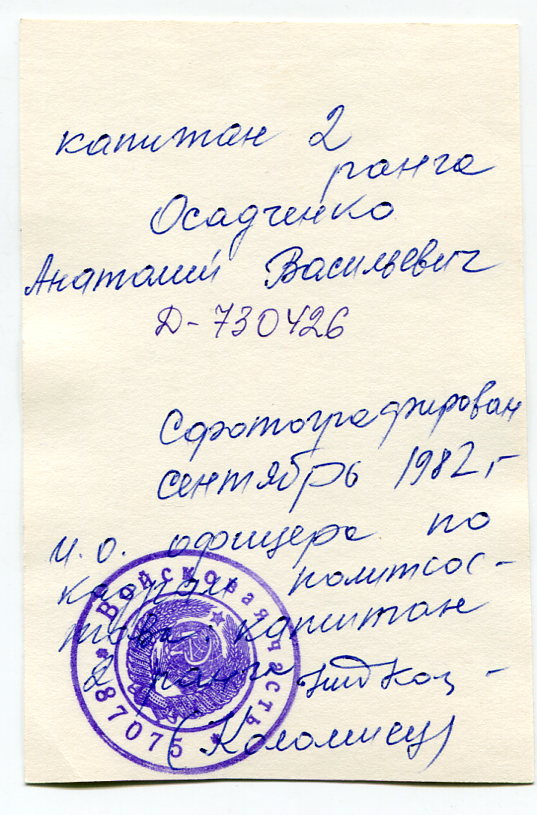 капитан 2
ранга
Осадченко
Анатолий Васильевич
Д-730426
Сфотографирован
сентябрь 1982 г
И.о. офицера по
кадрам политсос-
тава: капитан
2 ранга
(Коломиец)
Войсковая часть
* 87075 *